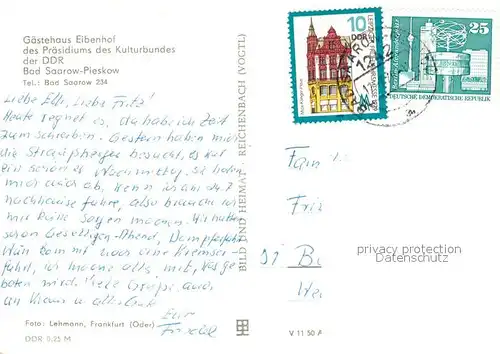 Gästehaus Eibenhof
des Präsidiums des Kulturbundes
der DDR
Bad Saarow-Pieskow
Tel.: Bad Saarow 234
Liebe Elli, Liebe Fritz!
Heute regnet es, da habe ich Zeit
zum schreiben. Gestern haben mich
die besucht, es war
ein schöner Nachmittag, sie haben
mich auch ab. Wenn ich am 24.7
nachhause fahre, also brauch ich
mir keine Sorgen machen. Wir hatten
schon Geselligen-Abend, Dampferfahrt
Nun kommt noch eine Kremser-
fahrt, ich mache alles mit, was ge
boten wird. Viele Grüße, auch
an Klaus u. alles Gute
Eur
Friedel
Foto: Lehmann, Frankfurt (Oder)
DDR 0,25 M
BILD UND HEIMAT REICHENBACH (VOGTL)
V 11 50 A
10
DDR
25
DEUTSCHE DEMOKRATISCHE REPUBLIK
Fam
Fri
privacy protection
Datenschutz